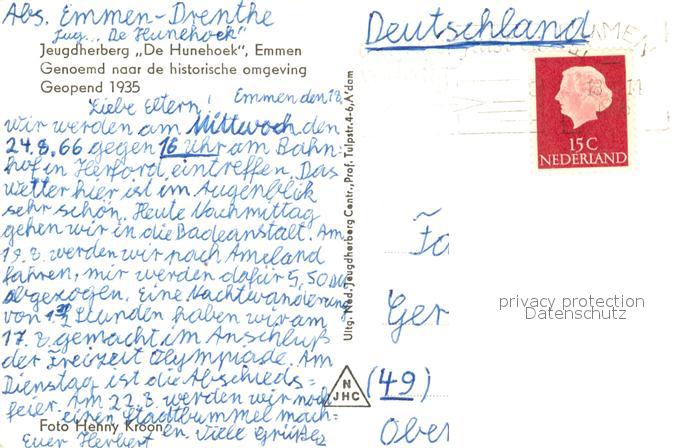 Abs. Emmen-Drenthe
Jug. „De Hunehoek"
Jeugdherberg „De Hunehoek", Emmen
Genoemd naar de historische omgeving
Geopend 1935
Liebe Eltern! Emmen den 18.
wir werden am Mittwoch den
24.8.66 gegen 16 Uhr am Bahn=
hof in Herford eintreffen. Das
Wetter hier ist im Augenblik
sehr schön. Heute Nachmittag
gehen wir in die Badeanstalt. Am
19.8. werden wir nach Ameland
fahren, mir werden dafür 5,50 DM
abgezogen. Eine Nachtwanderung
von Stunden haben wir am
17.8. gemacht im Anschluß
der Freizeit Olympiade. Am
Dienstag ist die Abschieds=
feier. Am 22.8. werden wir noch
einen Stadtbummel mach=
en. Viele Grüße
Euer Herbert
Foto Henny Kroon
Uitg. Ned. Jeugdherberg Centr., Prof. Tulpstr. 4-6, A'dam
N
JHC
Deutschland
EMMEN
15 C
NEDERLAND
Fa
Ger
(49)
Ober
privacy protection
Datenschutz